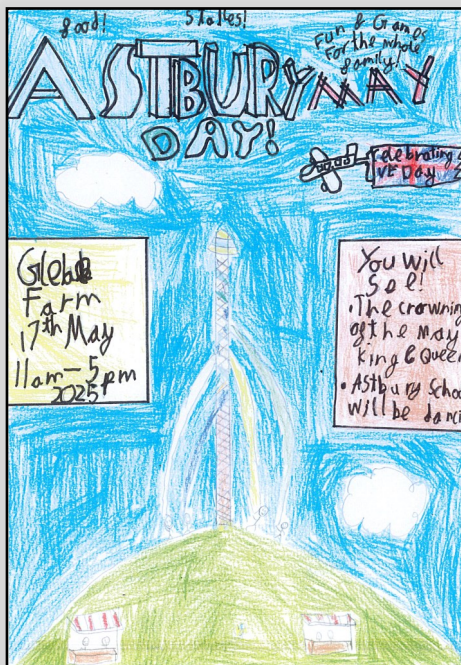 food!
Stalles!
Fun & Games
For the whole
family!
ASTBURY MAY
DAY!
Celebrating
VE Day
Glebe
Farm
17th May
11am – 5pm
2025
You will
See!
• The crowning
of the May
King & Queen
• Astbury Schoo
will be danci